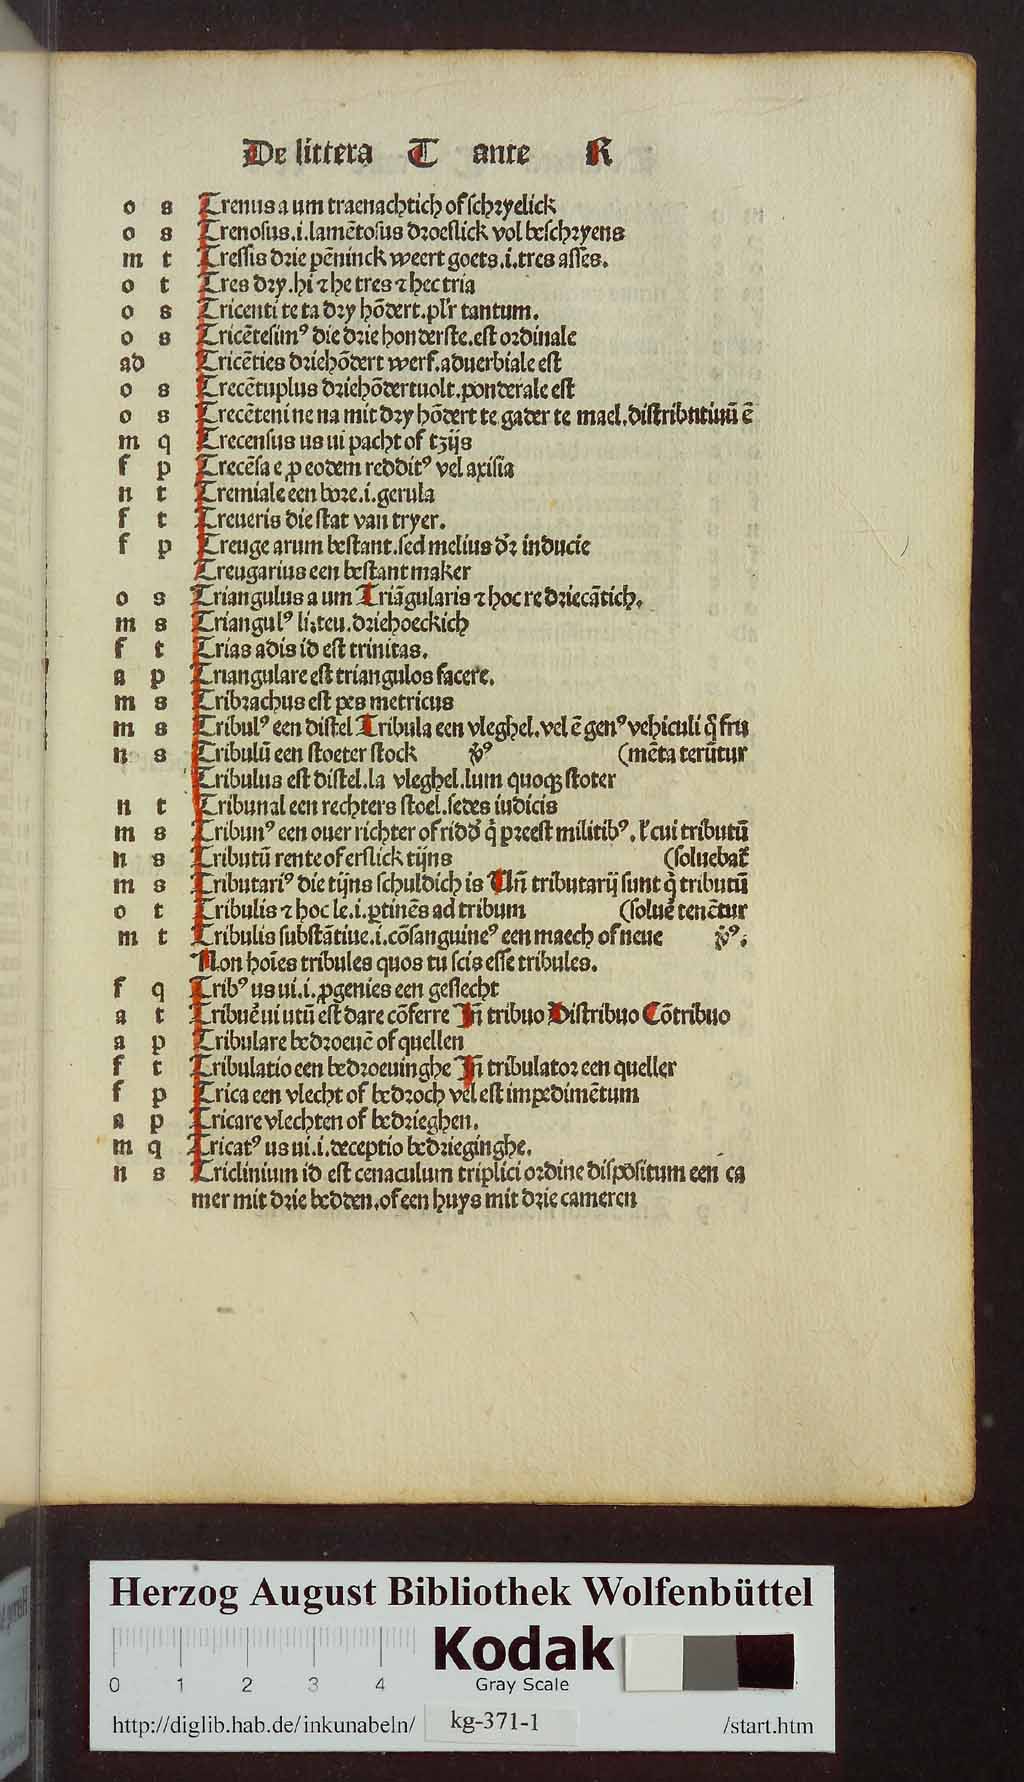 De littera T ante R
o s Trenus a um traenachtich of schryelick
o s Trenosus.i.lamētosus droeflick vol beschryens
m t Tressis drie pēninck weert goets.i.tres asses.
o t Tres dry.hi ⁊ he tres ⁊ hec tria
o s Tricenti te ta dry hōdert.pl'r tantum.
o s Tricētesimꝰ die drie honderste.est ordinale
ad Tricēties driehōdert werf.aduerbiale est
o s Trecētuplus driehōdertuolt.ponderale est
o s Trecēteni ne na mit dry hōdert te gader te mael.distributiuū ē
m q Trecensus us ui pacht of tzijs
f p Trecēsa e ꝓ eodem redditꝰ vel axisia
n t Tremiale een bore.i.gerula
f t Treueris die stat van tryer.
f p Treuge arum bestant.sed melius dr̄ inducie
Treugarius een bestant maker
o s Triangulus a um Triāgularis ⁊ hoc re driecātich.
m s Triangulꝰ li;teu.driehoeckich
f t Trias adis id est trinitas.
a p Triangulare est triangulos facere.
m s Tribrachus est pes metricus
m s Tribulꝰ een distel Tribula een vleghel.vel ē genꝰ vehiculi q̄ fru
n s Tribulū een stoeter stock v̓ꝰ (mēta terūtur
Tribulus est distel.la vleghel.lum quoqꝫ stoter
n t Tribunal een rechters stoel.sedes iudicis
m s Tribunꝰ een ouer richter of ridd' q̇ preest militibꝰ.l' cui tributū
n s Tributū rente of erflick tijns (soluebat'
m s Tributariꝰ die tijns schuldich is Vn̄ tributarij sunt q̇ tributū
o t Tribulis ⁊ hoc le.i.ꝑtinēs ad tribum (soluē tenētur
m t Tribulis substātiue.i.cōsanguineꝰ een maech of neue v̓ꝰ.
Non hoīes tribules quos tu scis esse tribules.
f q Tribꝰ us ui.i.ꝓgenies een geslecht
a t Tribuē ui utū est dare cōferre In̄ tribuo Distribuo Cōtribuo
a p Tribulare bedroeuē of quellen
f t Tribulatio een bedroeuinghe In̄ tribulator een queller
f p Trica een vlecht of bedroch vel est impedimētum
a p Tricare vlechten of bedrieghen.
m q Tricatꝰ us ui.i.deceptio bedrieginghe.
n s Triclinium id est cenaculum triplici ordine dispositum een ca
mer mit drie bedden.of een huys mit drie cameren
Herzog August Bibliothek Wolfenbüttel
0 1 2 3 4
Kodak
Gray Scale
http://diglib.hab.de/inkunabeln/ kg-371-1 /start.htm